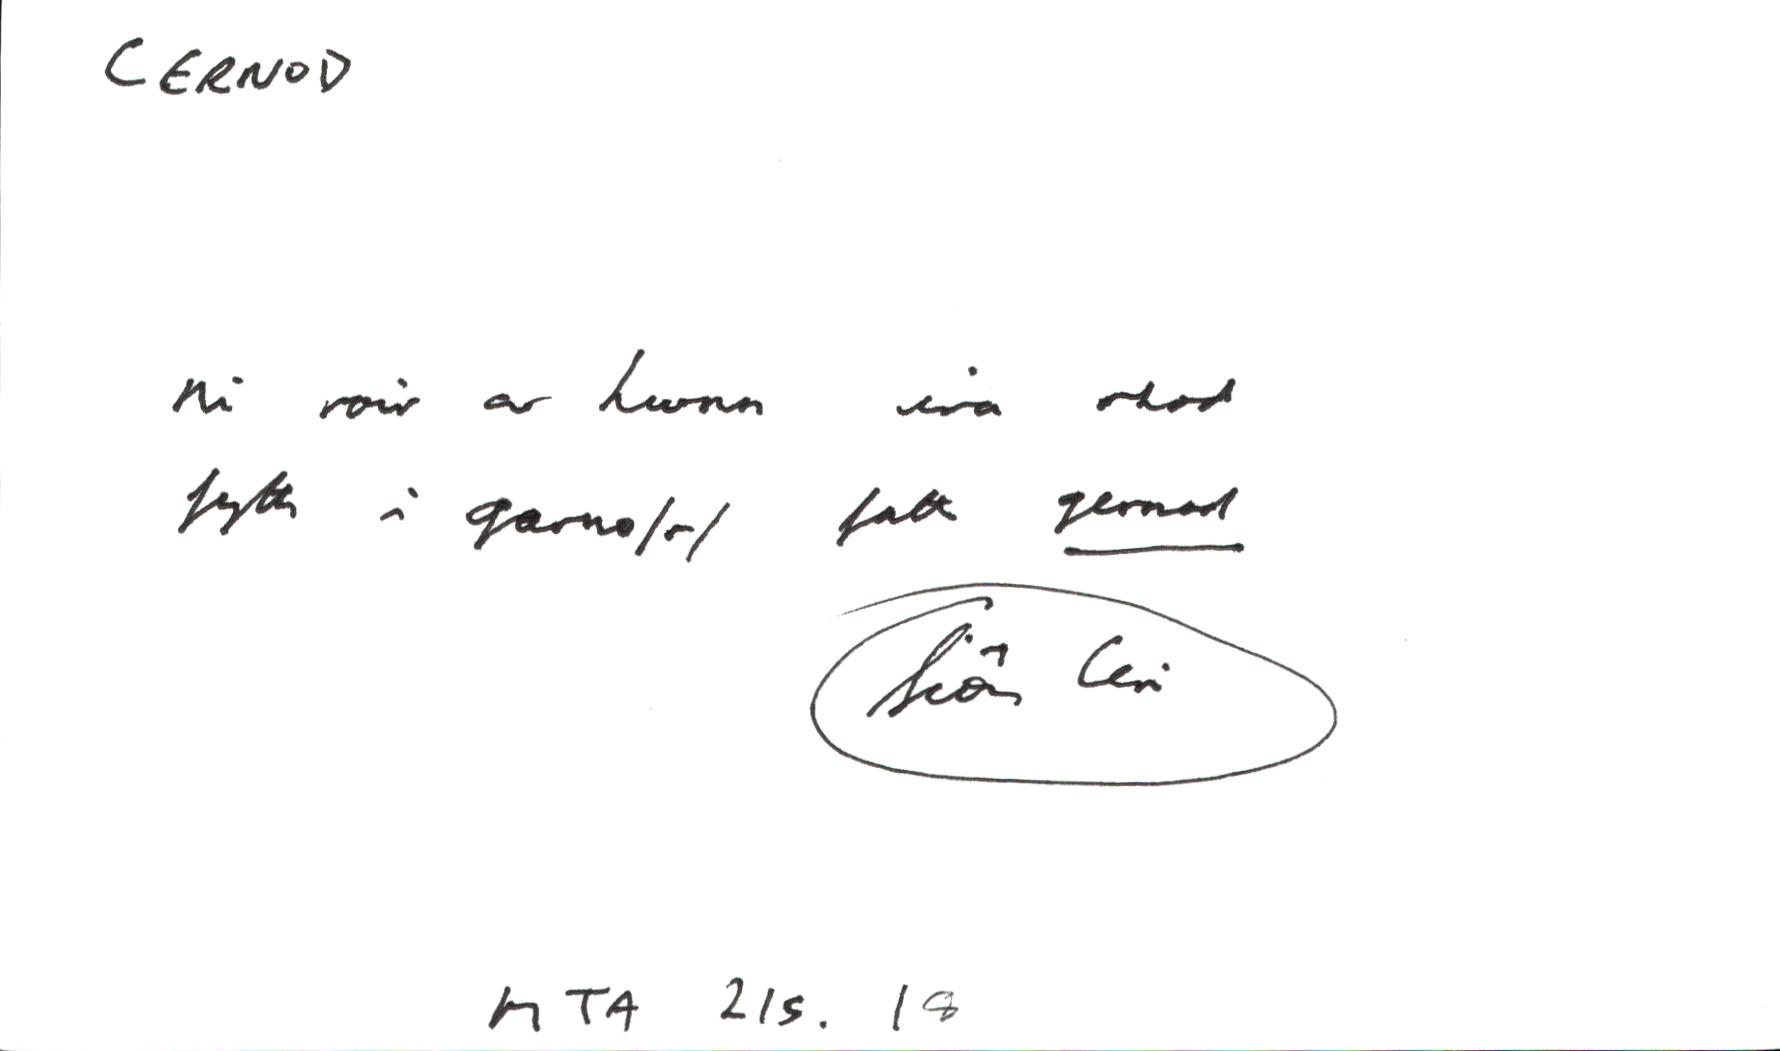 CERNOD
ni roir ar hwnn ira rhod
fyth i garno/r/ fath gernod
Siôn Ceri
MTA 215. 18